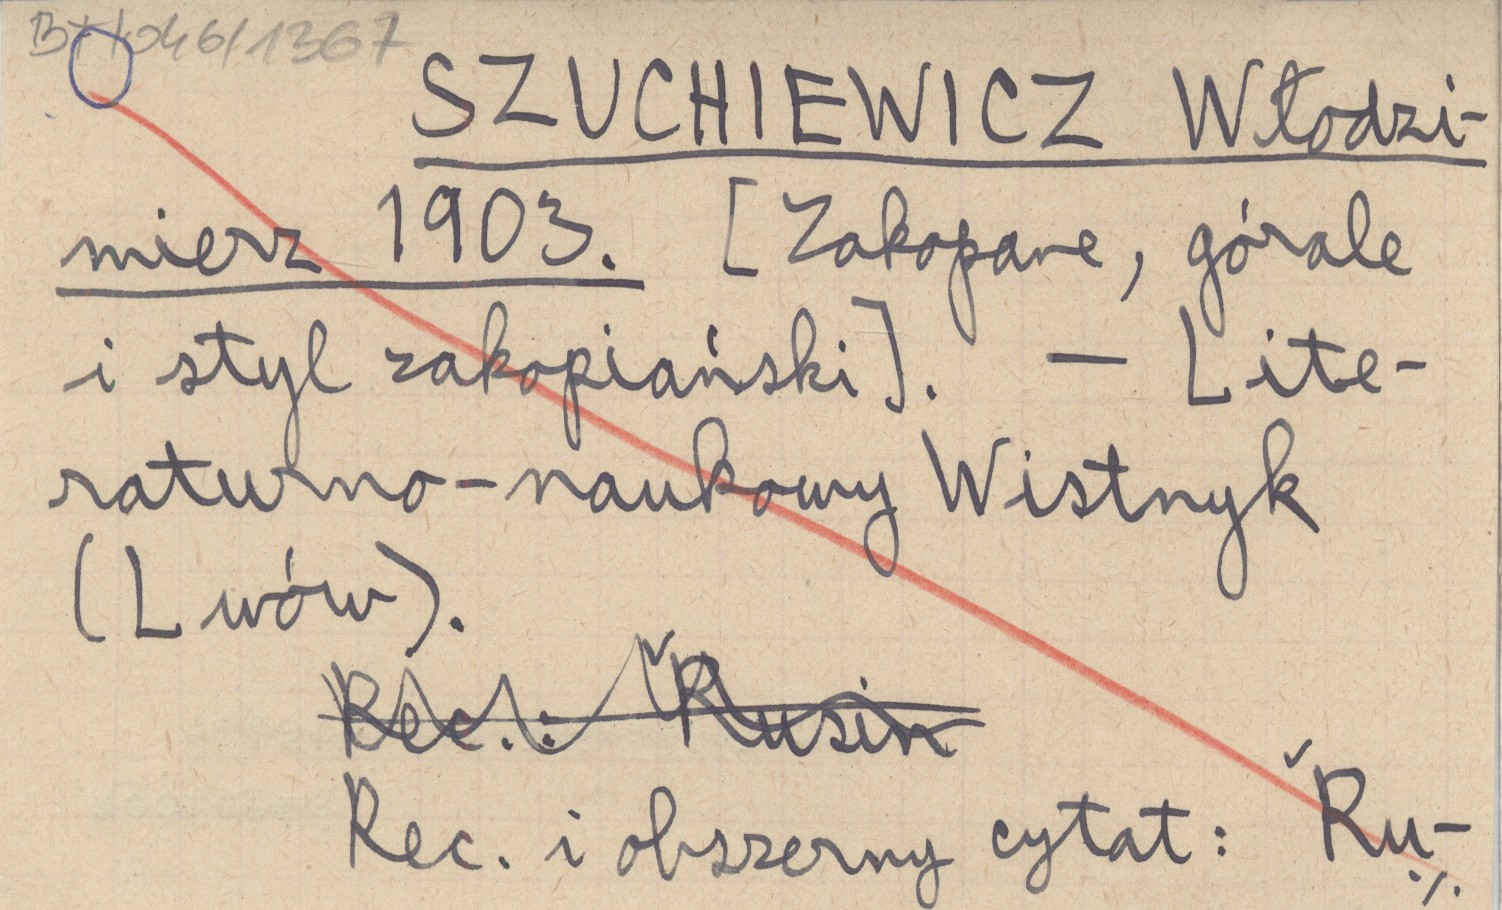 SZUCHIEWICZ Włodzi-
mierz 1903. [Zakopane, górale
i styl zakopiański]. — Lite-
raturno-naukowy Wistnyk
(Lwów).
Rec.: ˇRusin
Rec. i obszerny cytat: ˇRu-
./.